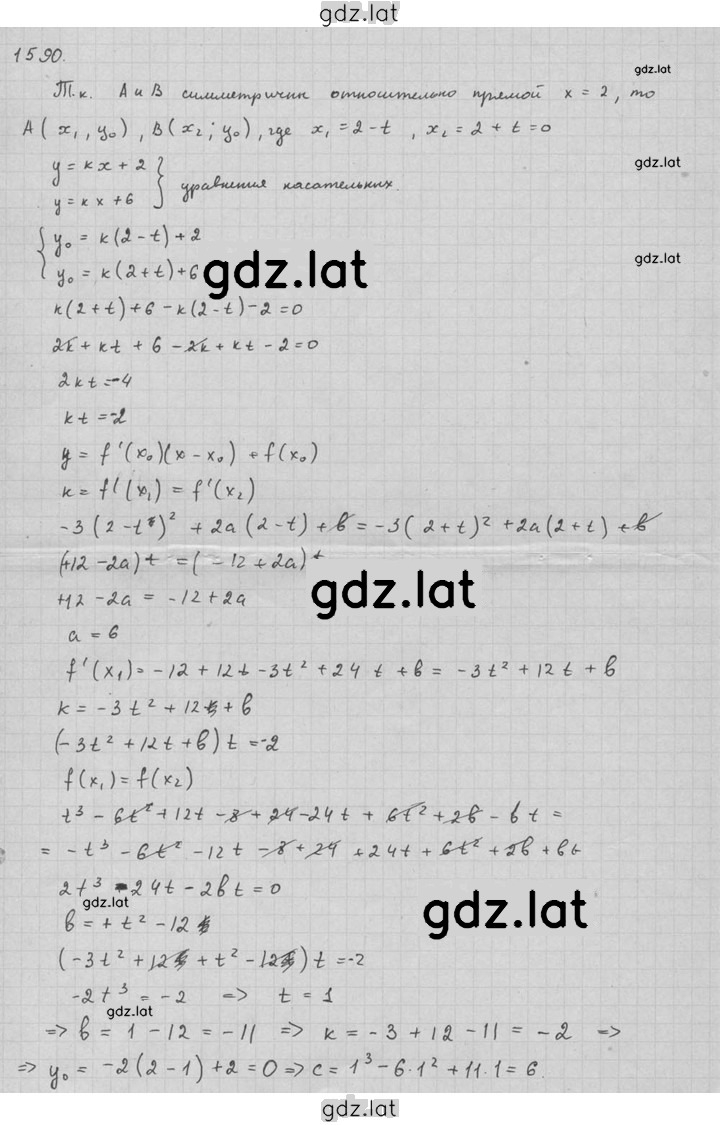 gdz.lat
1590.
gdz.lat
Т.к. A и B симметричны относительно прямой x = 2, то
A(x₁, y₀), B(x₂; y₀), где x₁ = 2 - t, x₂ = 2 + t = 0
y = kx + 2
gdz.lat
y = kx + 6 } уравнения касательных.
{ y₀ = k(2 - t) + 2
y₀ = k(2 + t) + 6
gdz.lat
gdz.lat
k(2 + t) + 6 - k(2 - t) - 2 = 0
2k + kt + 6 - 2k + kt - 2 = 0
2kt = -4
kt = -2
y = f'(x₀)(x - x₀) + f(x₀)
k = f'(x₁) = f'(x₂)
-3(2 - t)² + 2a(2 - t) + b = -3(2 + t)² + 2a(2 + t) + b
(+12 - 2a)t = (-12 + 2a)t
gdz.lat
+12 - 2a = -12 + 2a
a = 6
f'(x₁) = -12 + 12t - 3t² + 24 t + b = -3t² + 12t + b
k = -3t² + 12 + b
(-3t² + 12t + b)t = -2
f(x₁) = f(x₂)
t³ - 6t² + 12t - 8 + 24 - 24t + 6t² + 2b - bt =
= -t³ - 6t² - 12t - 8 + 24 + 24t + 6t² + 2b + bt
2t³ - 24t - 2bt = 0
gdz.lat
gdz.lat
b = + t² - 12
(-3t² + 12 + t² - 12)t = -2
-2t³ = -2 => t = 1
gdz.lat
=> b = 1 - 12 = -11 => k = -3 + 12 - 11 = -2 =>
=> y₀ = -2(2 - 1) + 2 = 0 => c = 1³ - 6·1² + 11·1 = 6.
gdz.lat